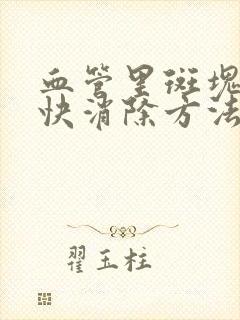 血管里斑块
快消除方法
翟玉柱